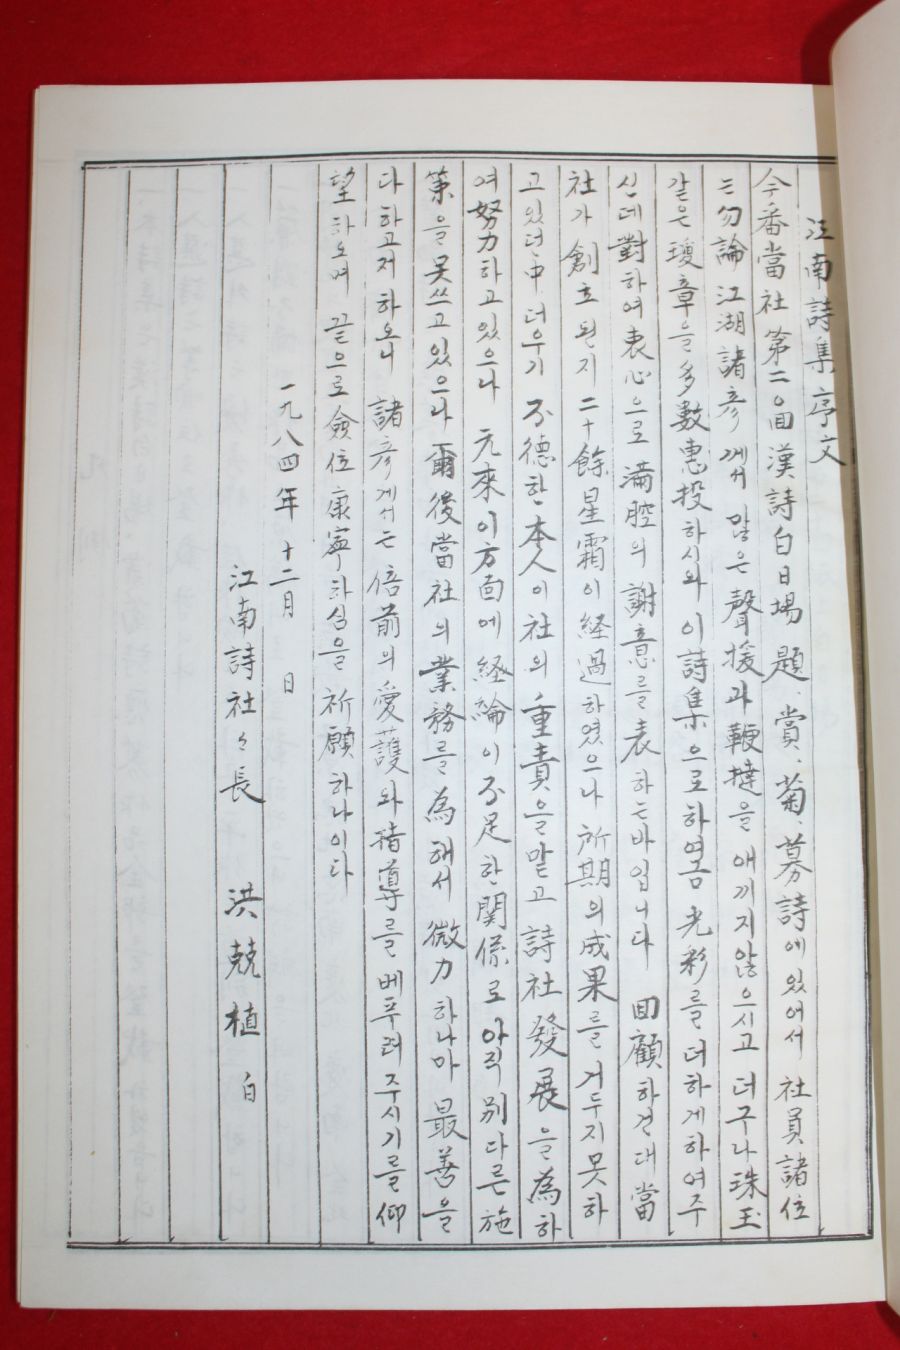 江南詩集序文
今番當社 第二０回 漢詩白日場 題、賞、菊、募詩에 있어서 社員諸位
는 勿論 江湖諸彦께서 많은 聲援과 鞭撻을 애끼지않으시고 더구나 珠玉
같은 瓊章을 多數惠投하시와 이 詩集으로하여곰 光彩를 더하게하여주
신데 對하여 衷心으로 滿腔의 謝意를 表하는바입니다 回顧하건대 當
社가 創立된지 二十餘星霜이 経過하였으나 所期의 成果를 거두지못하
고 있던中 더우기 不德한 本人이 社의 重責을 맡고 詩社發展을 為하
여 努力하고있으나 元來 이方面에 経綸이 不足한 関係로 아직 別다른 施
策을 못쓰고있으나 爾後 當社의 業務를 為해서 微力하나마 最善을
다하고저 하오니 諸彦께서는 倍前의 愛護와 指導를 베푸러주시기를 仰
望하오며 끝으로 僉位 康寧하심을 祈願하나이다
一九八四年 十二月 日
江南詩社々長 洪兢植 白